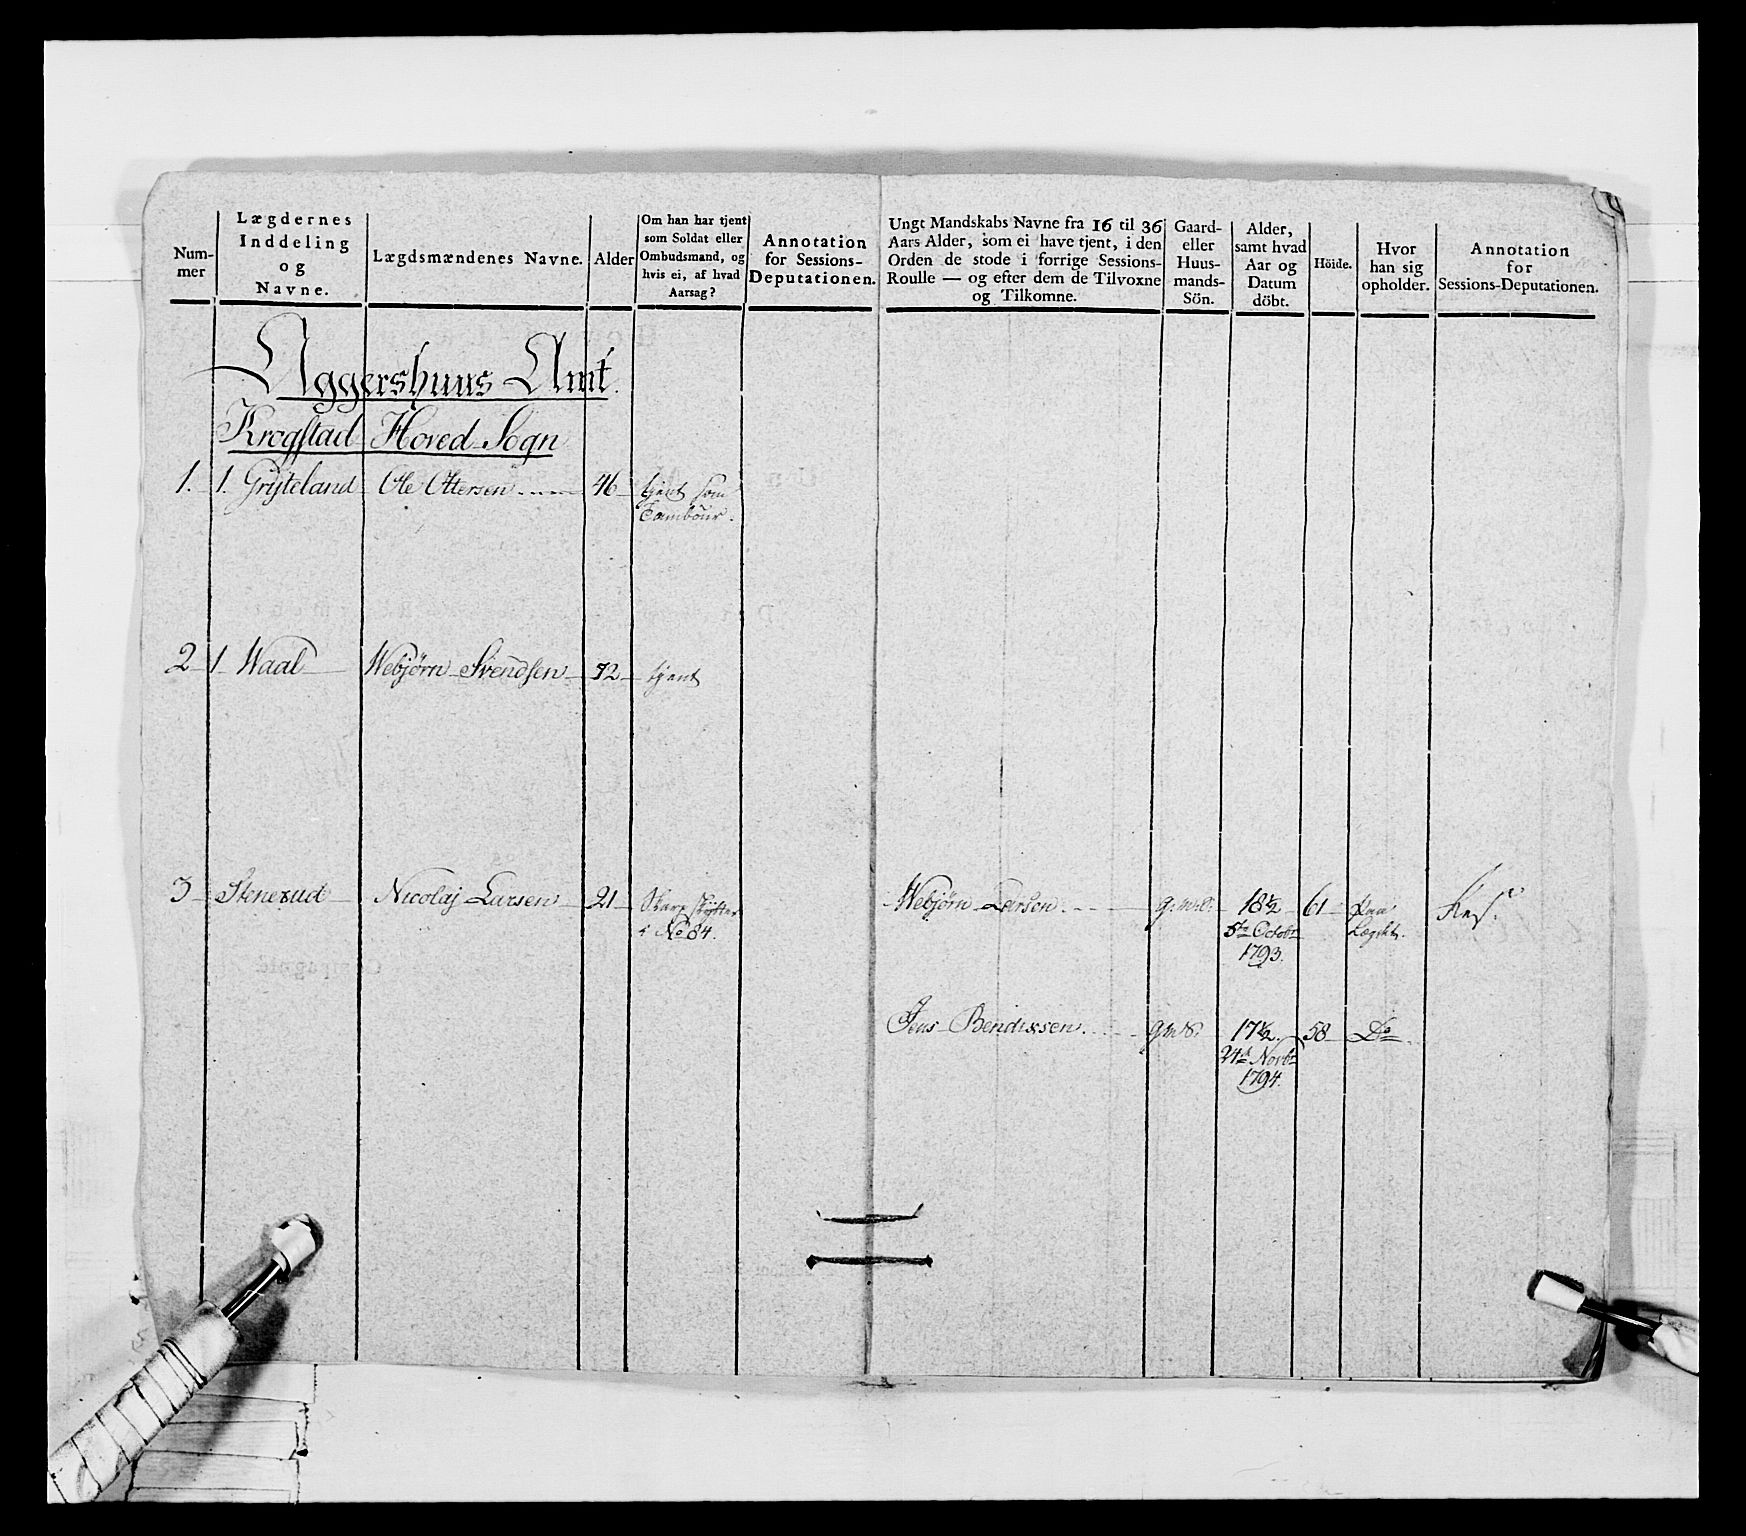 Num-
mer
Lægdernes
Inddeling
og
Navne.
Lægdsmændenes Navne.
Alder
Om han har tjent
som Soldat eller
Ombudsmand, og
hvis ei, af hvad
Aarsag?
Annotation
for Sessions-
Deputationen.
Ungt Mandskabs Navne fra 16 til 36
Aars Alder, som ei have tjent, i den
Orden de stode i forrige Sessions-
Roulle — og efter dem de Tilvoxne
og Tilkomne.
Gaard-
eller
Huus-
mands-
Sön.
Alder,
samt hvad
Aar og
Datum
döbt.
Höide.
Hvor
han sig
opholder.
Annotation
for
Sessions-Deputationen.
Aggershuus Amt.
Krogstad Hoved Sogn
1. 1. Gryteland Ole Ottersen 46 tjent som
Tambour.
2 1 Waal Webjørn Svendsen 72 tjent
3 Stenerud Nicolaj Larsen 21 Skarpskytter
No 84.
Webjørn Larsen. 18½ 61 Paa
5te Octobr Lægdet.
1793.
Jens Bendixsen. 17½ 58 Do
24de Novbr
1794.